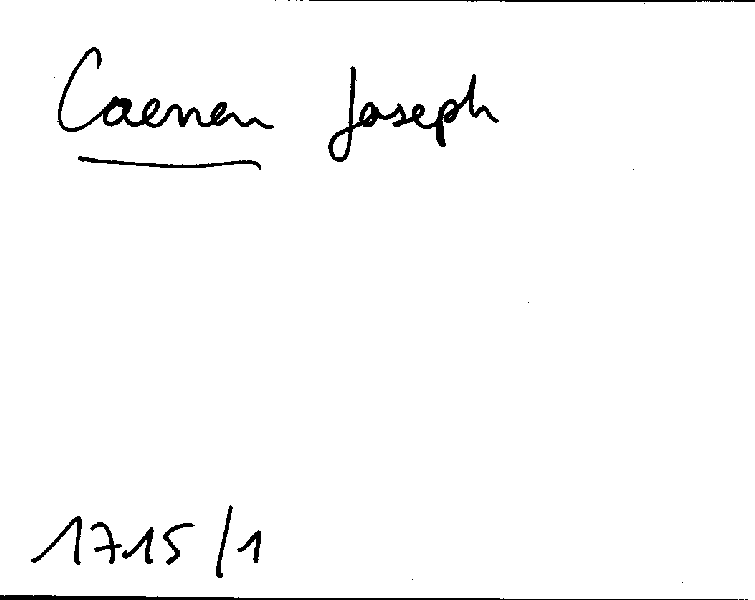 Caenen Joseph
1715/1